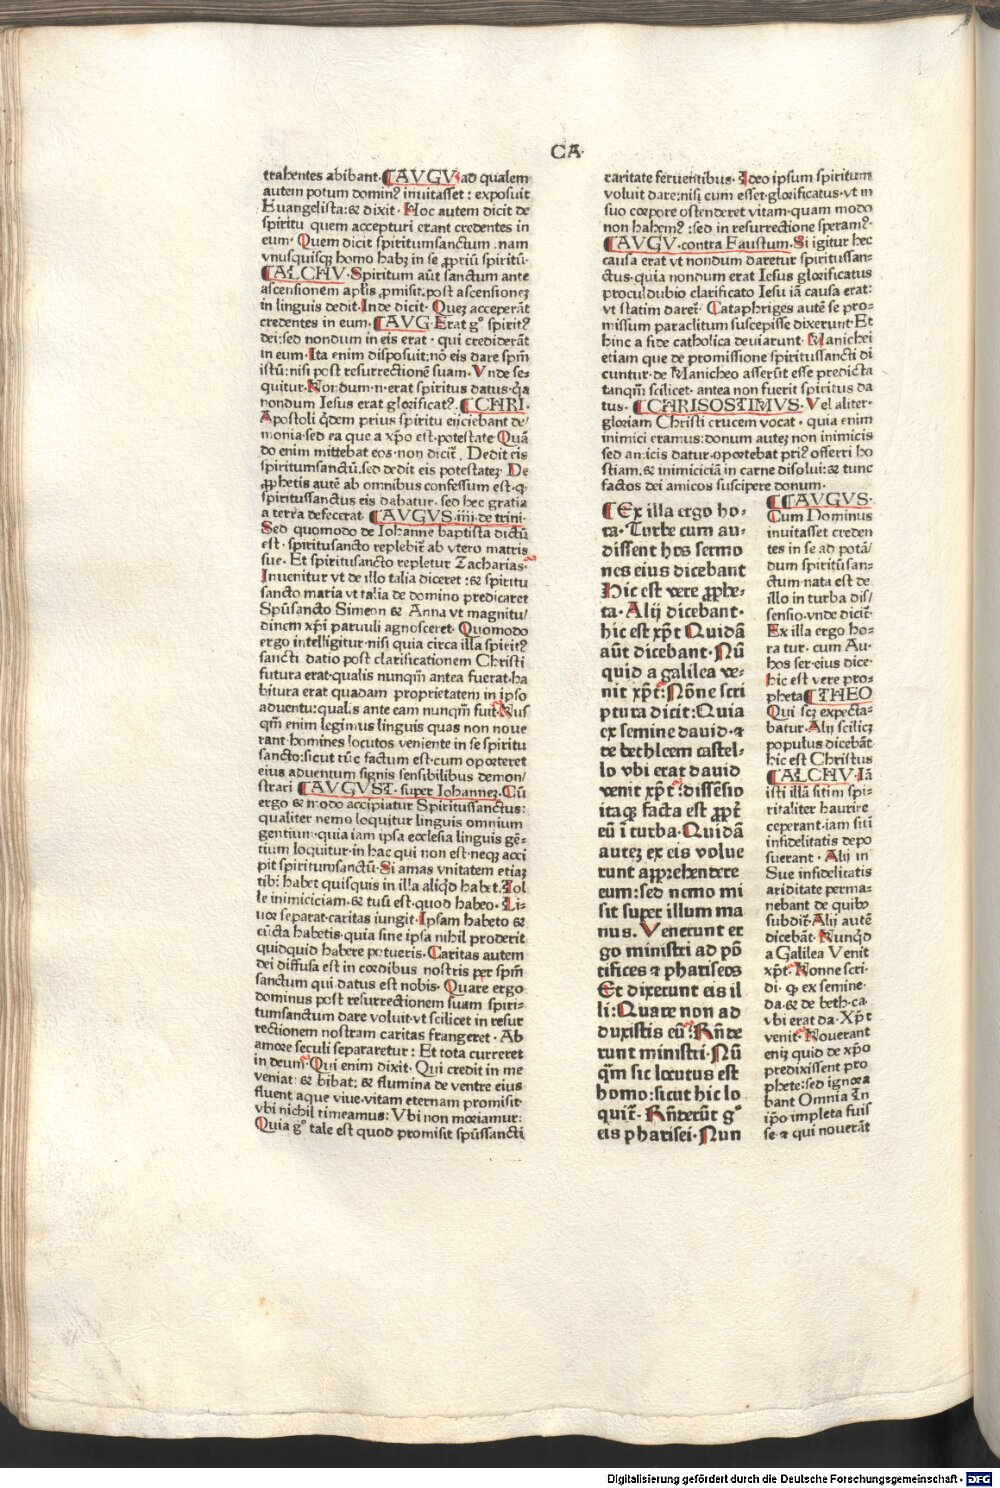 CA·
trahentes abibant· ⸿AVGV· ad qualem
autem potum domin⁹ inuitasset : exposuit
Euangelista:& dixit · Hoc autem dicit de
spiritu quem accepturi erant credentes in
eum· Quem dicit spiritumsanctum . nam
vnusquisqꝫ homo habꝫ in se ꝓpriū spiritū·
⸿ALCHV· Spiritum aūt sanctum ante
ascensionem aplis ꝓmisit.post ascensioneꝫ
in linguis dedit·Inde dicit· Queꝫ acceperāt
credentes in eum· ⸿AVG·Erat g° spirit⁹
dei:sed nondum in eis erat · qui crediderāt
in eum·Ita enim disposuit:nō eis dare spm̄
istū:nisi post resurrectionē suam· Vnde se-
quitur·Nondum·n·erat spiritus datus·q̄a
nondum Iesus erat glorificat⁹. ⸿CHRI·
Apostoli q̄dem prius spiritu eijciebant de/
monia·sed ea que a xp̄o est·potestate Quā
do enim mittebat eos·non dicit̄. Dedit eis
spiritumsanctū.sed dedit eis potestateꝫ· De
ꝓphetis autē ab omnibus confessum est·q̨
spiritussanctus eis dabatur· sed hec gratia
a terra defecerat· ⸿AVGVS·iiij·de trini·
Sed quomodo de Iohanne baptista dictū
est · spiritusancto replebit̄ ab vtero matris
sue· Et spiritusancto repletur Zacharias·
Inuenitur vt de illo talia diceret :& spiritu
sancto maria vt talia de domino predicaret
Spūsancto Simeon & Anna vt magnitu/
dinem xp̄i paruuli agnosceret· Quomodo
ergo intelligitur·nisi quia circa illa spirit⁹
sancti datio post clarificationem Christi
futura erat·qualis nunqm̄ antea fuerat·ha
bitura erat quadam proprietatem in ipso
aduentu:qualis ante eam nunqm̄ fuit·Nus
qm̄ enim legimus linguis quas non noue
rant·homines locutos veniente in se spiritu
sancto:sicut tūc factum est·cum oporteret
eius aduentum signis sensibilibus demon/
strari ⸿AVGVST· super Iohanneꝫ·Cū
ergo & modo accipiatur Spiritussanctus:
qualiter nemo loquitur linguis omnium
gentium·quia iam ipsa ecclesia linguis gē-
tium loquitur·in hac qui non est·neqꝫ acci
pit spiritumsanctū·Si amas vnitatem etiaꝫ
tibi habet quisquis in illa aliqd habet·Tol
le inimiciciam·& tuū est·quod habeo· Li-
uor separat·caritas iungit·Ipsam habeto &
cūcta habetis·quia sine ipsa nihil proderit
quidquid habere potueris· Caritas autem
dei diffusa est in cordibus nostris per spm̄
sanctum qui datus est nobis· Quare ergo
dominus post resurrectionem suam spiri-
tumsanctum dare voluit·vt scilicet in resur
rectionem nostram caritas frangeret · Ab
amore seculi separaretur : Et tota curreret
in deum·Qui enim dixit· Qui credit in me
veniat·& bibat: & flumina de ventre eius
fluent aque viue·vitam eternam promisit·
vbi nichil timeamus: Vbi non moriamur:
Quia g° tale est quod promisit spūssancti
caritate feruentibus· Ideo ipsum spiritum
voluit dare:nisi cum esset·glorificatus·vt in
suo corpore ostenderet vitam·quam modo
non habem⁹ :sed in resurrectione speram⁹·
⸿AVGV·contra Faustum·Si igitur hec
causa erat vt nondum daretur spiritussan-
ctus·quia nondum erat Iesus glorificatus
proculdubio clarificato Iesu iā causa erat:
vt statim daret̄· Cataphriges autē se pro-
missum paraclitum suscepisse dixerunt·Et
hinc a fide catholica deuiarunt· Manichei
etiam que de promissione spiritussancti di
cuntur·de Manicheo asserūt esse predicta
tanqm̄ scilicet·antea non fuerit spiritus da
tus· ⸿CHRISOSTIMVS· Vel aliter·
gloriam Christi crucem vocat · quia enim
inimici eramus:donum auteꝫ non inimicis
sed amicis datur·oportebat pri⁹ offerri ho
stiam·& iniciciā in carne disolui:& tunc
factos dei amicos suscipere donum·
⸿Ex illa ergo ho-
ra· Turbe cum au-
dissent hos sermo
nes eius dicebant
Hic est vere ꝓphe-
ta· Alij dicebant·
hic est xp̄t Quidā
aūt dicebant· Nū
quid a galilea ve-
nit xp̄t : Nōne scri
ptura dicit:Quia
ex semine dauid·⁊
de bethleem castel-
lo vbi erat dauid
venit xp̄t :dissēsio
itaqꝫ facta est ꝓpt̄
eū ī turba·Quidā
auteꝫ ex eis volue
runt apprehendere
eum:sed nemo mi
sit super illum ma
nus. Venerunt er
go ministri ad pō
tifices ⁊ phariseos
Et dixerunt eis il
li:Quare non ad
duxistis eū :Rn̄de
runt ministri·Nū
qm̄ sic locutus est
homo:sicut hic lo
quit̄· Rn̄derūt g°
eis pharisei· Nun
⸿⸿AVGVS·
Cum Dominus
inuitasset creden
tes in se ad potā/
dum spiritūsan-
ctum·nata est de
illo in turba dis/
sensio·vnde dicit̄·
Ex illa ergo ho-
ra tur· cum Au·
hos ser·eius dice·
hic est vere pro-
pheta ⸿THEO
Qui scꝫ expecta-
batur·Alij scilicꝫ
populus dicebāt
hic est Christus
⸿ALCHV·Iā
isti illā sitim spi-
ritaliter haurire
ceperant·iam sitī
infidelitatis depo
suerant · Alij in
Sue infidelitatis
ariditate perma-
nebant de quibꝰ
subdit̄·Alij autē
dicebāt·Nunqd
a Galilea Venit
xp̄t· Nonne scri·
di· q̨ ex semine·
da·& de beth·ca·
vbi erat da· Xp̄t
venit· Nouerant
eniꝫ quid de xp̄o
predixissent pro
phete:sed ignora
bant Omnia In
ip̄o impleta fuis
se·⁊ qui nouerāt
Digitalisierung gefördert durch die Deutsche Forschungsgemeinschaft - DFG